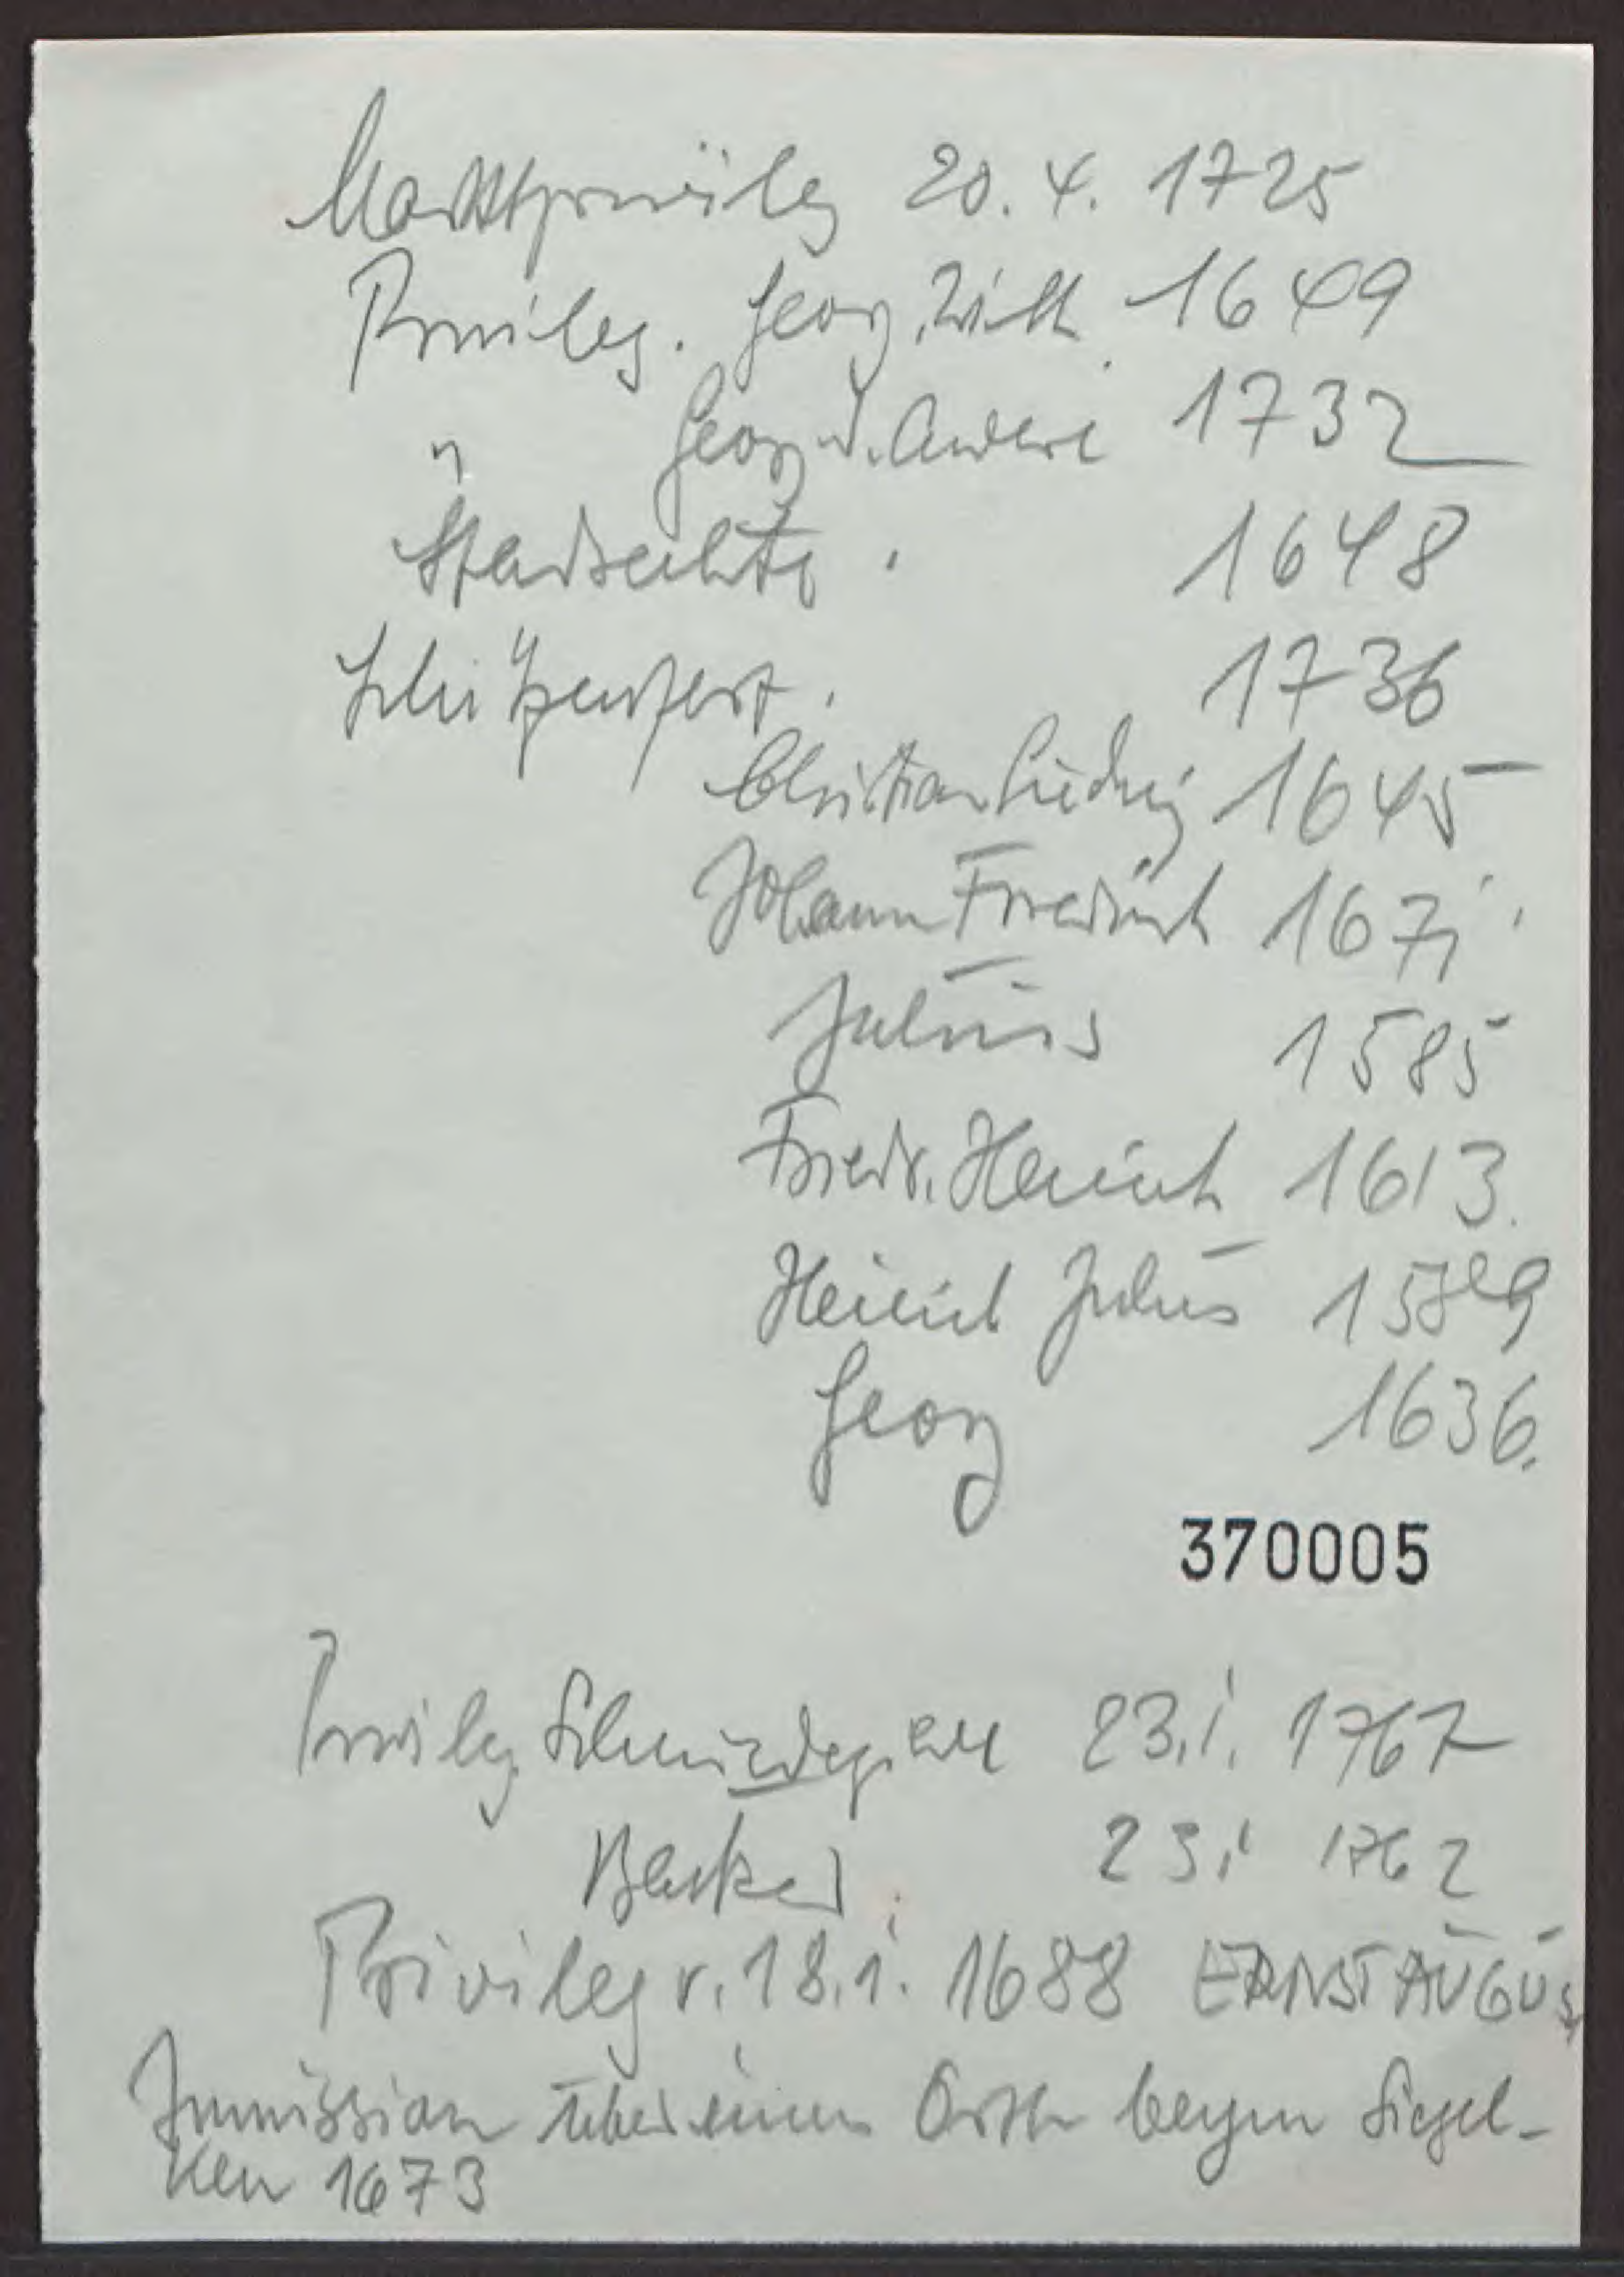 Marktprivileg 20.4.1725
Privileg. Georg Wilh. 1649
" Georg d. Andere 1732
Stadtrechte. 1648
Schützenfest. 1736
Christian Ludwig 1645
Johann Friedrich 1671.
Julius 1585
Friedr. Heinrich 1613.
Heinrich Julius 1589
Georg 1636.
370005
Privileg. Schmiedegilde 23.1.1767
Becker. 23.1 1762
Privileg v. 18.1. 1688 ERNST AUGUST
Immission über einen Orth beym Siegel-
ken 1673